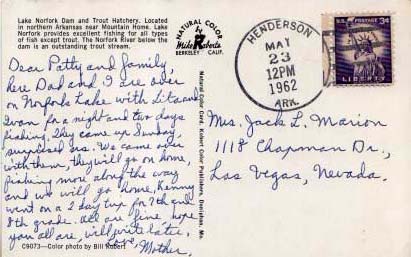 Lake Norfork Dam and Trout Hatchery. Located
in northern Arkansas near Mountain Home. Lake
Norfork provides excellent fishing for all types
of fish except trout. The Norfork River below the
dam is an outstanding trout stream.
Dear Patty and family,
here Dad and I are over
on Norfork Lake with Lita and
for a night and two days
fishing. They came up Sunday,
surprised us. We came over
with them, they will go on home,
fishing more along the way
and we will go home, Kenny
went on a 2 day trip for 7th and
8th grade. All are fine, hope
you all are, will write later,
Love, Mother.
C9073—Color photo by Bill Kobert
NATURAL COLOR
Mike Roberts
BERKELEY CALIF.
Natural Color Card, Kobert Color Publishers, Doniphan, Mo.
HENDERSON
MAY
23
12PM
1962
ARK.
3¢
LIBERTY
Mrs. Jack L. Marion
1118 Chapman Dr.,
Las Vegas, Nevada.